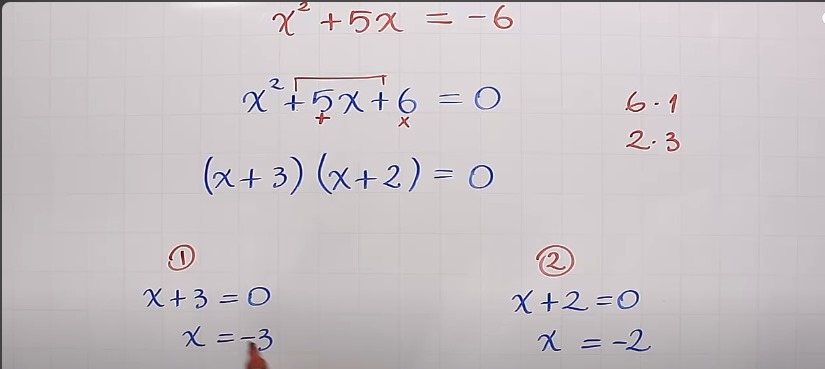 x² + 5x = -6
x² + 5x + 6 = 0
+ x
6 · 1
2 · 3
(x + 3) (x + 2) = 0
①
x + 3 = 0
x = -3
②
x + 2 = 0
x = -2